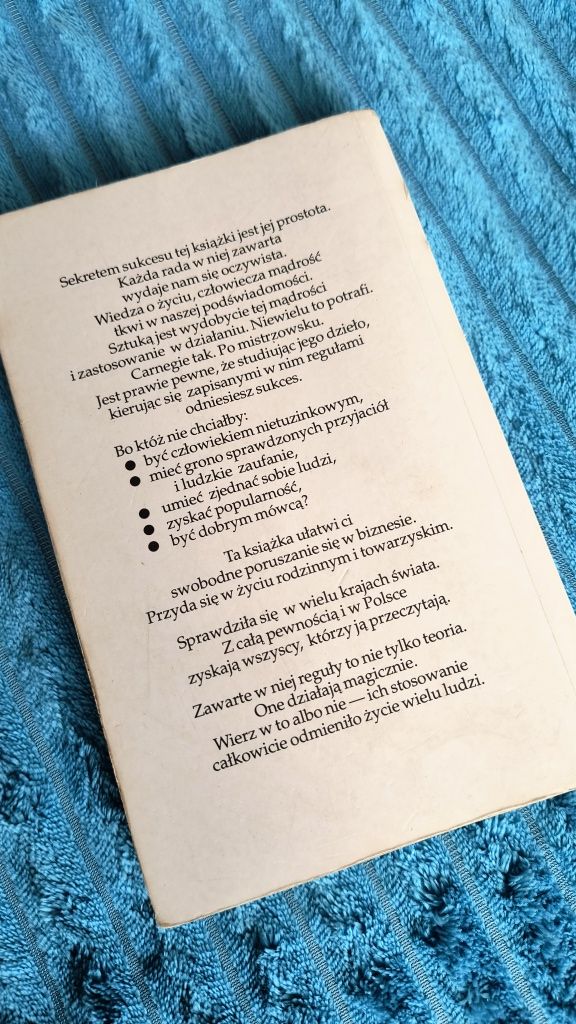 Sekretem sukcesu tej książki jest jej prostota.
Każda rada w niej zawarta
wydaje nam się oczywista.
Wiedza o życiu, człowiecza mądrość
tkwi w naszej podświadomości.
Sztuką jest wydobycie tej mądrości
i zastosowanie w działaniu. Niewielu to potrafi.
Carnegie tak. Po mistrzowsku.
Jest prawie pewne, że studiując jego dzieło,
kierując się zapisanymi w nim regułami
odniesiesz sukces.
Bo któż nie chciałby:
● być człowiekiem nietuzinkowym,
● mieć grono sprawdzonych przyjaciół
i ludzkie zaufanie,
● umieć zjednać sobie ludzi,
● zyskać popularność,
● być dobrym mówcą?
Ta książka ułatwi ci
swobodne poruszanie się w biznesie.
Przyda się w życiu rodzinnym i towarzyskim.
Sprawdziła się w wielu krajach świata.
Z całą pewnością i w Polsce
zyskają wszyscy, którzy ją przeczytają.
Zawarte w niej reguły to nie tylko teoria.
One działają magicznie.
Wierz w to albo nie — ich stosowanie
całkowicie odmieniło życie wielu ludzi.